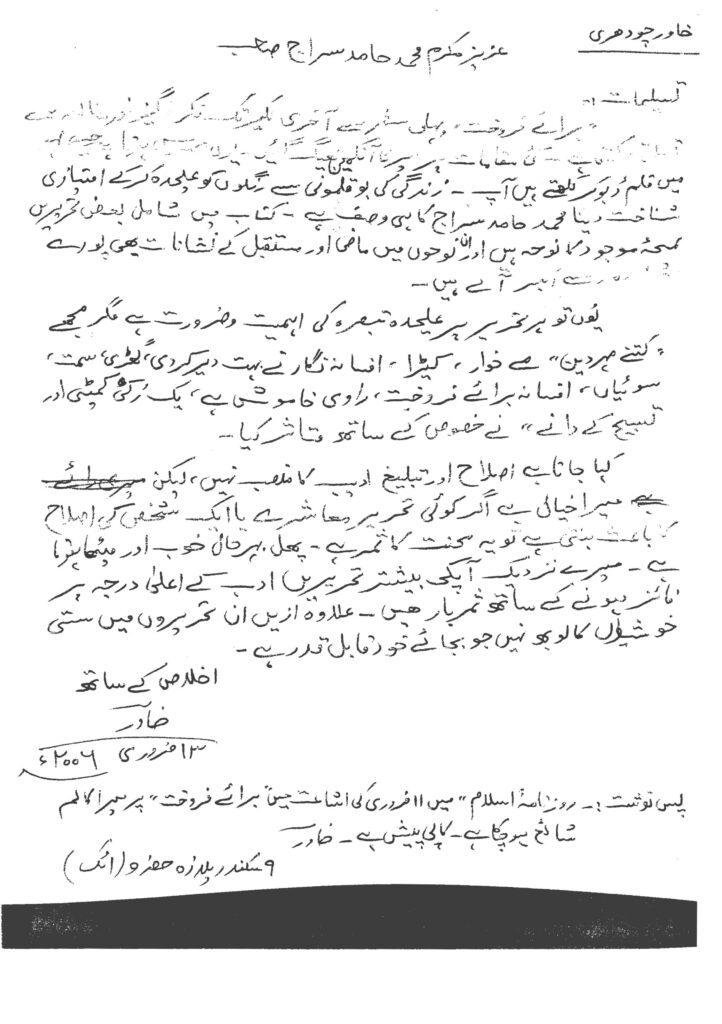 خاور چودھری
عزیز مکرم محمد حامد سراج صاحب
تسلیمات !۔
"برائے فروخت" پہلی سطر سے آخری لکیر تک فکر انگیز اور
مقامات پر میری آنکھیں بھیگ گئیں۔
میں قلم ڈبو کر لکھتے ہیں آپ ۔ زندگی کی بوقلمونی سے رنگوں کو علیحدہ کر کے امتیازی
شناخت دینا محمد حامد سراج کا ہی وصف ہے ۔ کتاب میں شامل بعض تحریریں
لمحۂ موجود کا نوحہ ہیں اور ان نوحوں میں ماضی اور مستقبل کے نشانات بھی پورے
سے ابھر آئے ہیں ۔
یُوں تو ہر تحریر پر علیحدہ تبصرہ کی اہمیت و ضرورت ہے مگر مجھے
"کتنے مہر دین" مے خوار ، کیڑا ، افسانہ نگار نے بہت دیر کر دی ، گٹھڑی سمت ،
سوئیاں ، افسانہ برائے فروخت ، راوی خاموش ہے ، یک رکنی کمیٹی اور
تسبیح کے دانے" نے خصوص کے ساتھ متاثر کیا ۔
کہا جاتا ہے اصلاح اور تبلیغ ادیب کا منصب نہیں ، لیکن
میرا خیال ہے اگر کوئی تحریر معاشرے یا ایک شخص کی اصلاح
کا باعث بنتی ہے تو یہ محنت کا ثمر ہے ۔ پھل بہرحال خوب اور میٹھا ہوتا
ہے ۔ میرے نزدیک آپکی بیشتر تحریریں ادب کے اعلیٰ درجہ پر
فائز ہونے کے ساتھ ثمر بار ہیں ۔ علاوہ ازیں ان تحریروں میں سستی
خوشیوں کا لوبھ نہیں جو بجائے خود قابل قدر ہے ۔
اخلاص کے ساتھ
خاور
۱۳ فروری ۲۰۰۶ء
پس نوشت :۔ روزنامۂ اسلام" میں ۱۱ فروری کی اشاعت میں "برائے فروخت" پر میرا کالم
شائع ہو چکا ہے ۔ کاپی پیش ہے ۔ خاور
۹ سکندر پلازہ حضرو (اٹک)